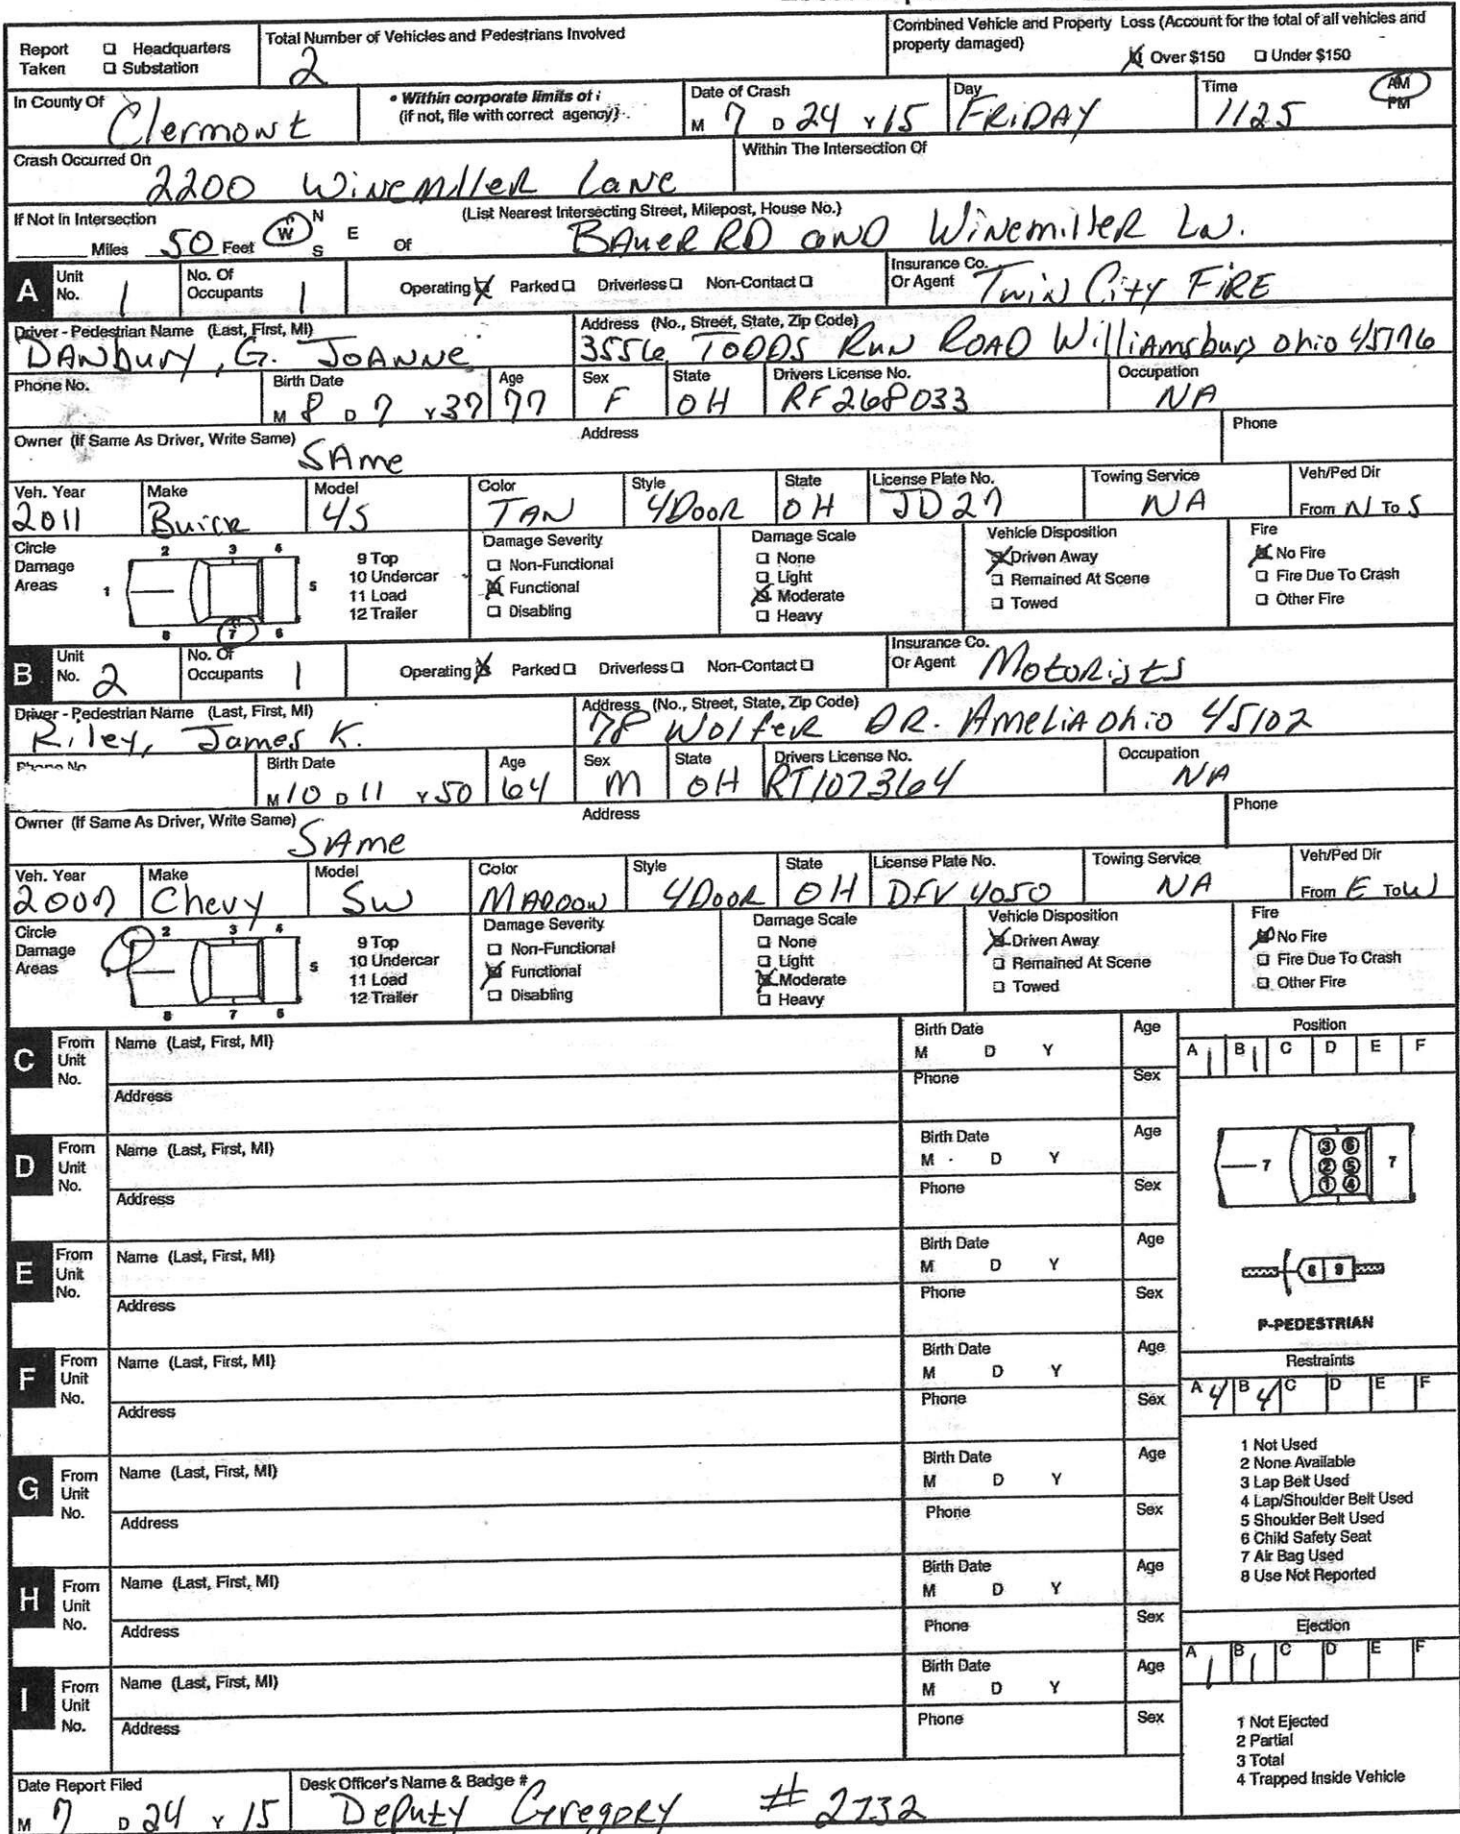 Report Taken ☐ Headquarters ☐ Substation
Total Number of Vehicles and Pedestrians Involved
2
Combined Vehicle and Property Loss (Account for the total of all vehicles and property damaged)
☒ Over $150 ☐ Under $150
In County Of Clermont
• Within corporate limits of :
(if not, file with correct agency)
Date of Crash M 7 D 24 Y 15
Day FRIDAY
Time 1125 AM PM
Crash Occurred On 2200 Winemiller Lane
Within The Intersection Of
If Not In Intersection
Miles 50 Feet N W E S Of
(List Nearest Intersecting Street, Milepost, House No.)
BAuER RD and Winemiller LN.
A Unit No. 1
No. Of Occupants 1
Operating ☒ Parked ☐ Driverless ☐ Non-Contact ☐
Insurance Co. Or Agent Twin City FIRE
Driver - Pedestrian Name (Last, First, MI)
DANbury, G. JoANNE
Address (No., Street, State, Zip Code)
3556 TODDS RuN ROAD Williamsburg ohio 45176
Phone No.
Birth Date M 8 D 7 Y 37
Age 77
Sex F
State OH
Drivers License No. RF268033
Occupation NA
Owner (If Same As Driver, Write Same) SAme
Address
Phone
Veh. Year 2011
Make Buick
Model 4S
Color TAN
Style 4DooR
State OH
License Plate No. JD27
Towing Service NA
Veh/Ped Dir From N To S
Circle Damage Areas
1 2 3 4 5 6 7 8
9 Top
10 Undercar
11 Load
12 Trailer
Damage Severity
☐ Non-Functional
☒ Functional
☐ Disabling
Damage Scale
☐ None
☐ Light
☒ Moderate
☐ Heavy
Vehicle Disposition
☒ Driven Away
☐ Remained At Scene
☐ Towed
Fire
☒ No Fire
☐ Fire Due To Crash
☐ Other Fire
B Unit No. 2
No. Of Occupants 1
Operating ☒ Parked ☐ Driverless ☐ Non-Contact ☐
Insurance Co. Or Agent Motorists
Driver - Pedestrian Name (Last, First, MI)
Riley, James K.
Address (No., Street, State, Zip Code)
78 Wolfer DR. Amelia Ohio 45102
Phone No
Birth Date M 10 D 11 Y 50
Age 64
Sex M
State OH
Drivers License No. RT1073164
Occupation NA
Owner (If Same As Driver, Write Same) SAme
Address
Phone
Veh. Year 2007
Make Chevy
Model SW
Color MAROON
Style 4DooR
State OH
License Plate No. DFV 4050
Towing Service NA
Veh/Ped Dir From E To W
Circle Damage Areas
2 3 4 5 6 7 8
9 Top
10 Undercar
11 Load
12 Trailer
Damage Severity
☐ Non-Functional
☒ Functional
☐ Disabling
Damage Scale
☐ None
☐ Light
☒ Moderate
☐ Heavy
Vehicle Disposition
☒ Driven Away
☐ Remained At Scene
☐ Towed
Fire
☒ No Fire
☐ Fire Due To Crash
☐ Other Fire
C From Unit No.
Name (Last, First, MI)
Birth Date M D Y
Age
Address
Phone
Sex
D From Unit No.
Name (Last, First, MI)
Birth Date M D Y
Age
Address
Phone
Sex
E From Unit No.
Name (Last, First, MI)
Birth Date M D Y
Age
Address
Phone
Sex
F From Unit No.
Name (Last, First, MI)
Birth Date M D Y
Age
Address
Phone
Sex
G From Unit No.
Name (Last, First, MI)
Birth Date M D Y
Age
Address
Phone
Sex
H From Unit No.
Name (Last, First, MI)
Birth Date M D Y
Age
Address
Phone
Sex
I From Unit No.
Name (Last, First, MI)
Birth Date M D Y
Age
Address
Phone
Sex
Position
A 1 B 1 C D E F
7 3 6 2 5 1 4 7
8 9
P-PEDESTRIAN
Restraints
A 4 B 4 C D E F
1 Not Used
2 None Available
3 Lap Belt Used
4 Lap/Shoulder Belt Used
5 Shoulder Belt Used
6 Child Safety Seat
7 Air Bag Used
8 Use Not Reported
Ejection
A 1 B 1 C D E F
1 Not Ejected
2 Partial
3 Total
4 Trapped Inside Vehicle
Date Report Filed M 7 D 24 Y 15
Desk Officer's Name & Badge #
Deputy Gregory #2732